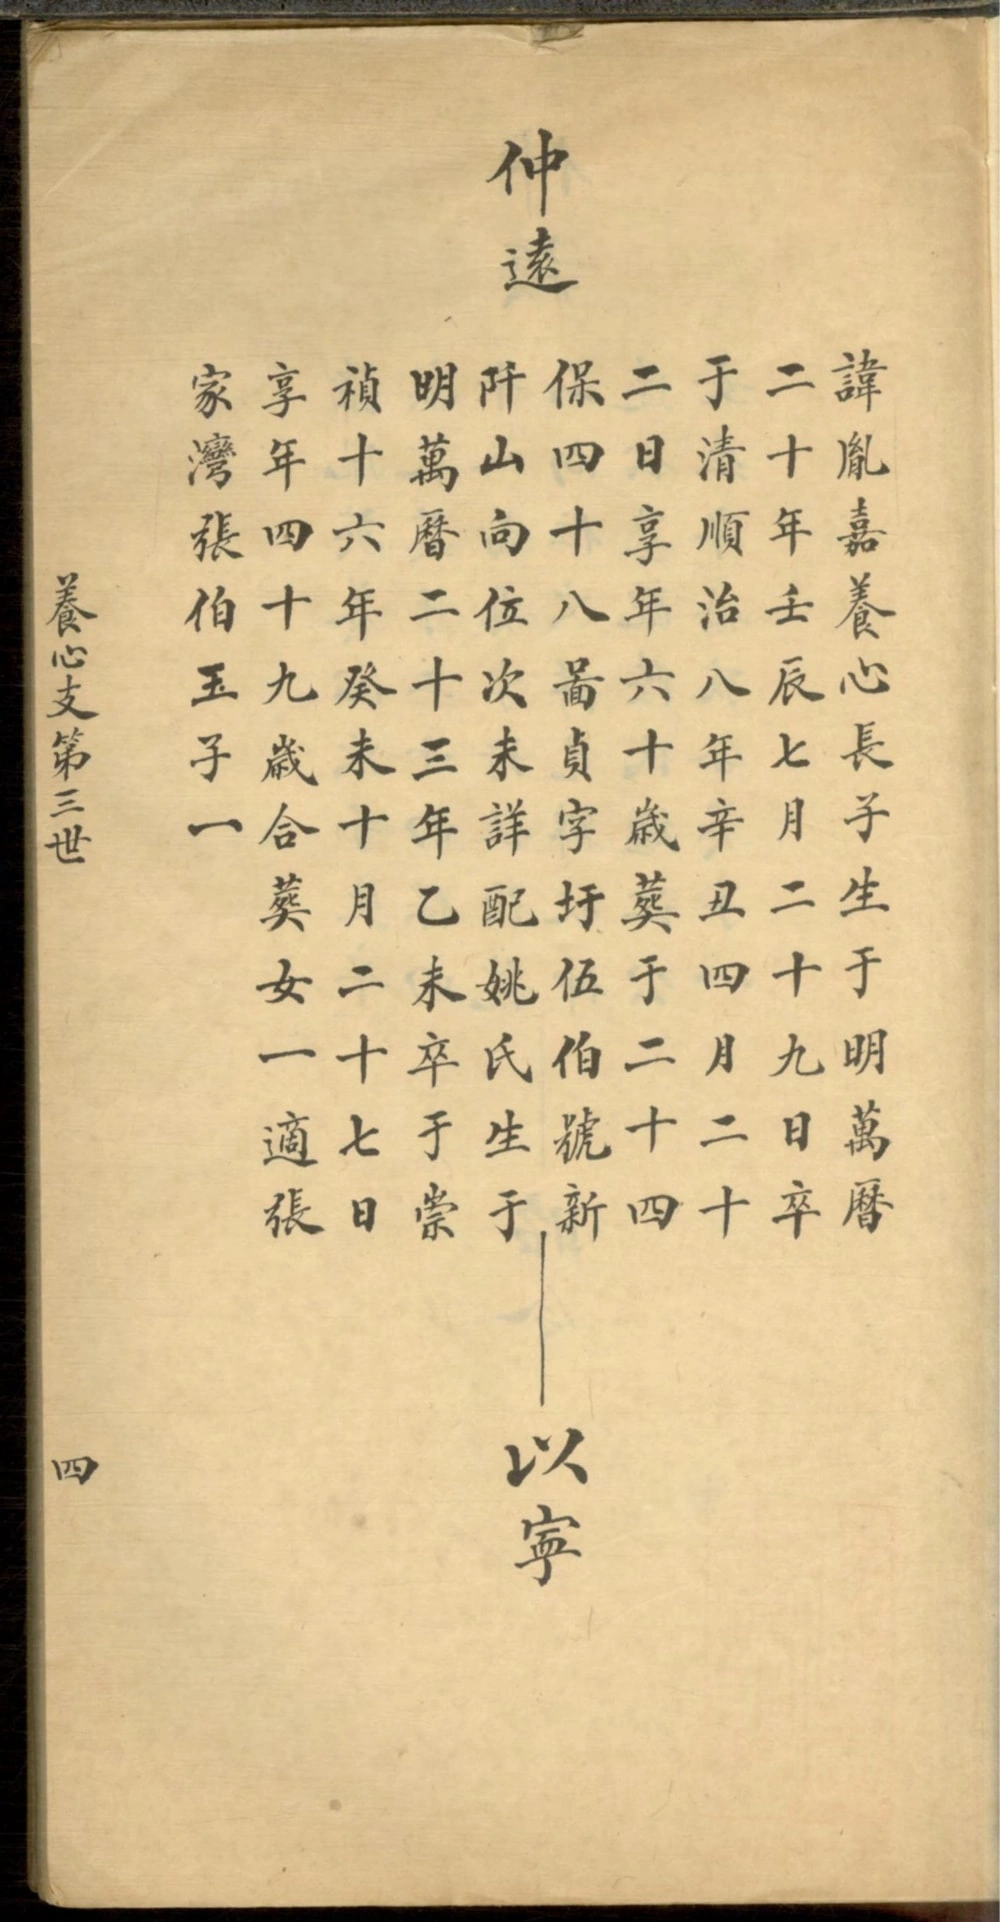 仲遠
諱胤嘉養心長子生于明萬曆
二十年壬辰七月二十九日卒
于清順治八年辛丑四月二十
二日享年六十歲葬于二十四
保四十八啚貞字圩伍伯號新
阡山向位次未詳配姚氏生于
明萬曆二十三年乙未卒于崇
禎十六年癸未十月二十七日
享年四十九歲合葬女一適張
家灣張伯玉子一
以寧
養心支第三世
四